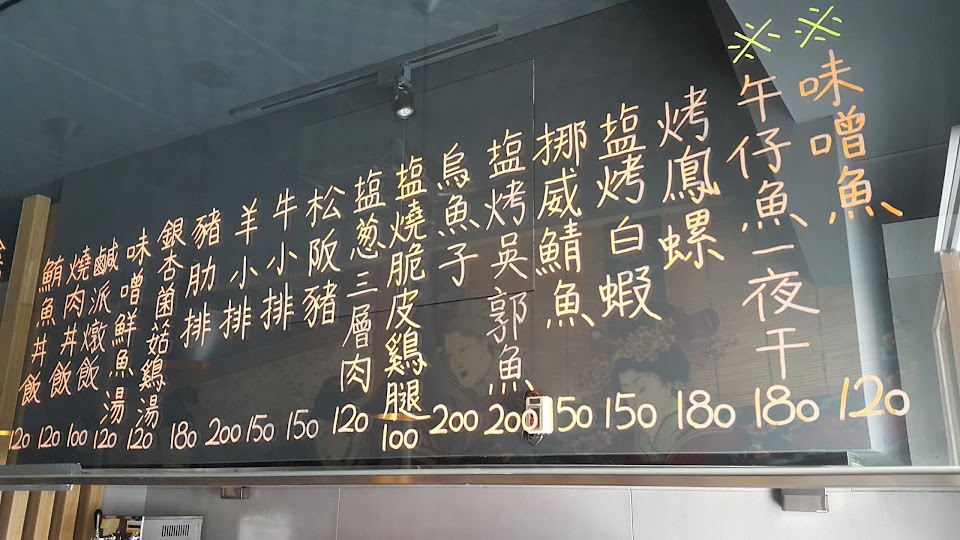 ※味噌魚 120
※午仔魚一夜干 180
烤鳳螺 180
塩烤白蝦 150
挪威鯖魚 150
塩烤吳郭魚 200
烏魚子 200
塩燒脆皮鷄腿 100
塩葱三層肉 120
松阪豬 150
牛小排 150
羊小排 200
豬肋排 180
銀杏菌菇鷄湯 120
味噌鮮魚湯 120
鹹派燉飯 100
燒肉丼飯 120
鮪魚丼飯 120